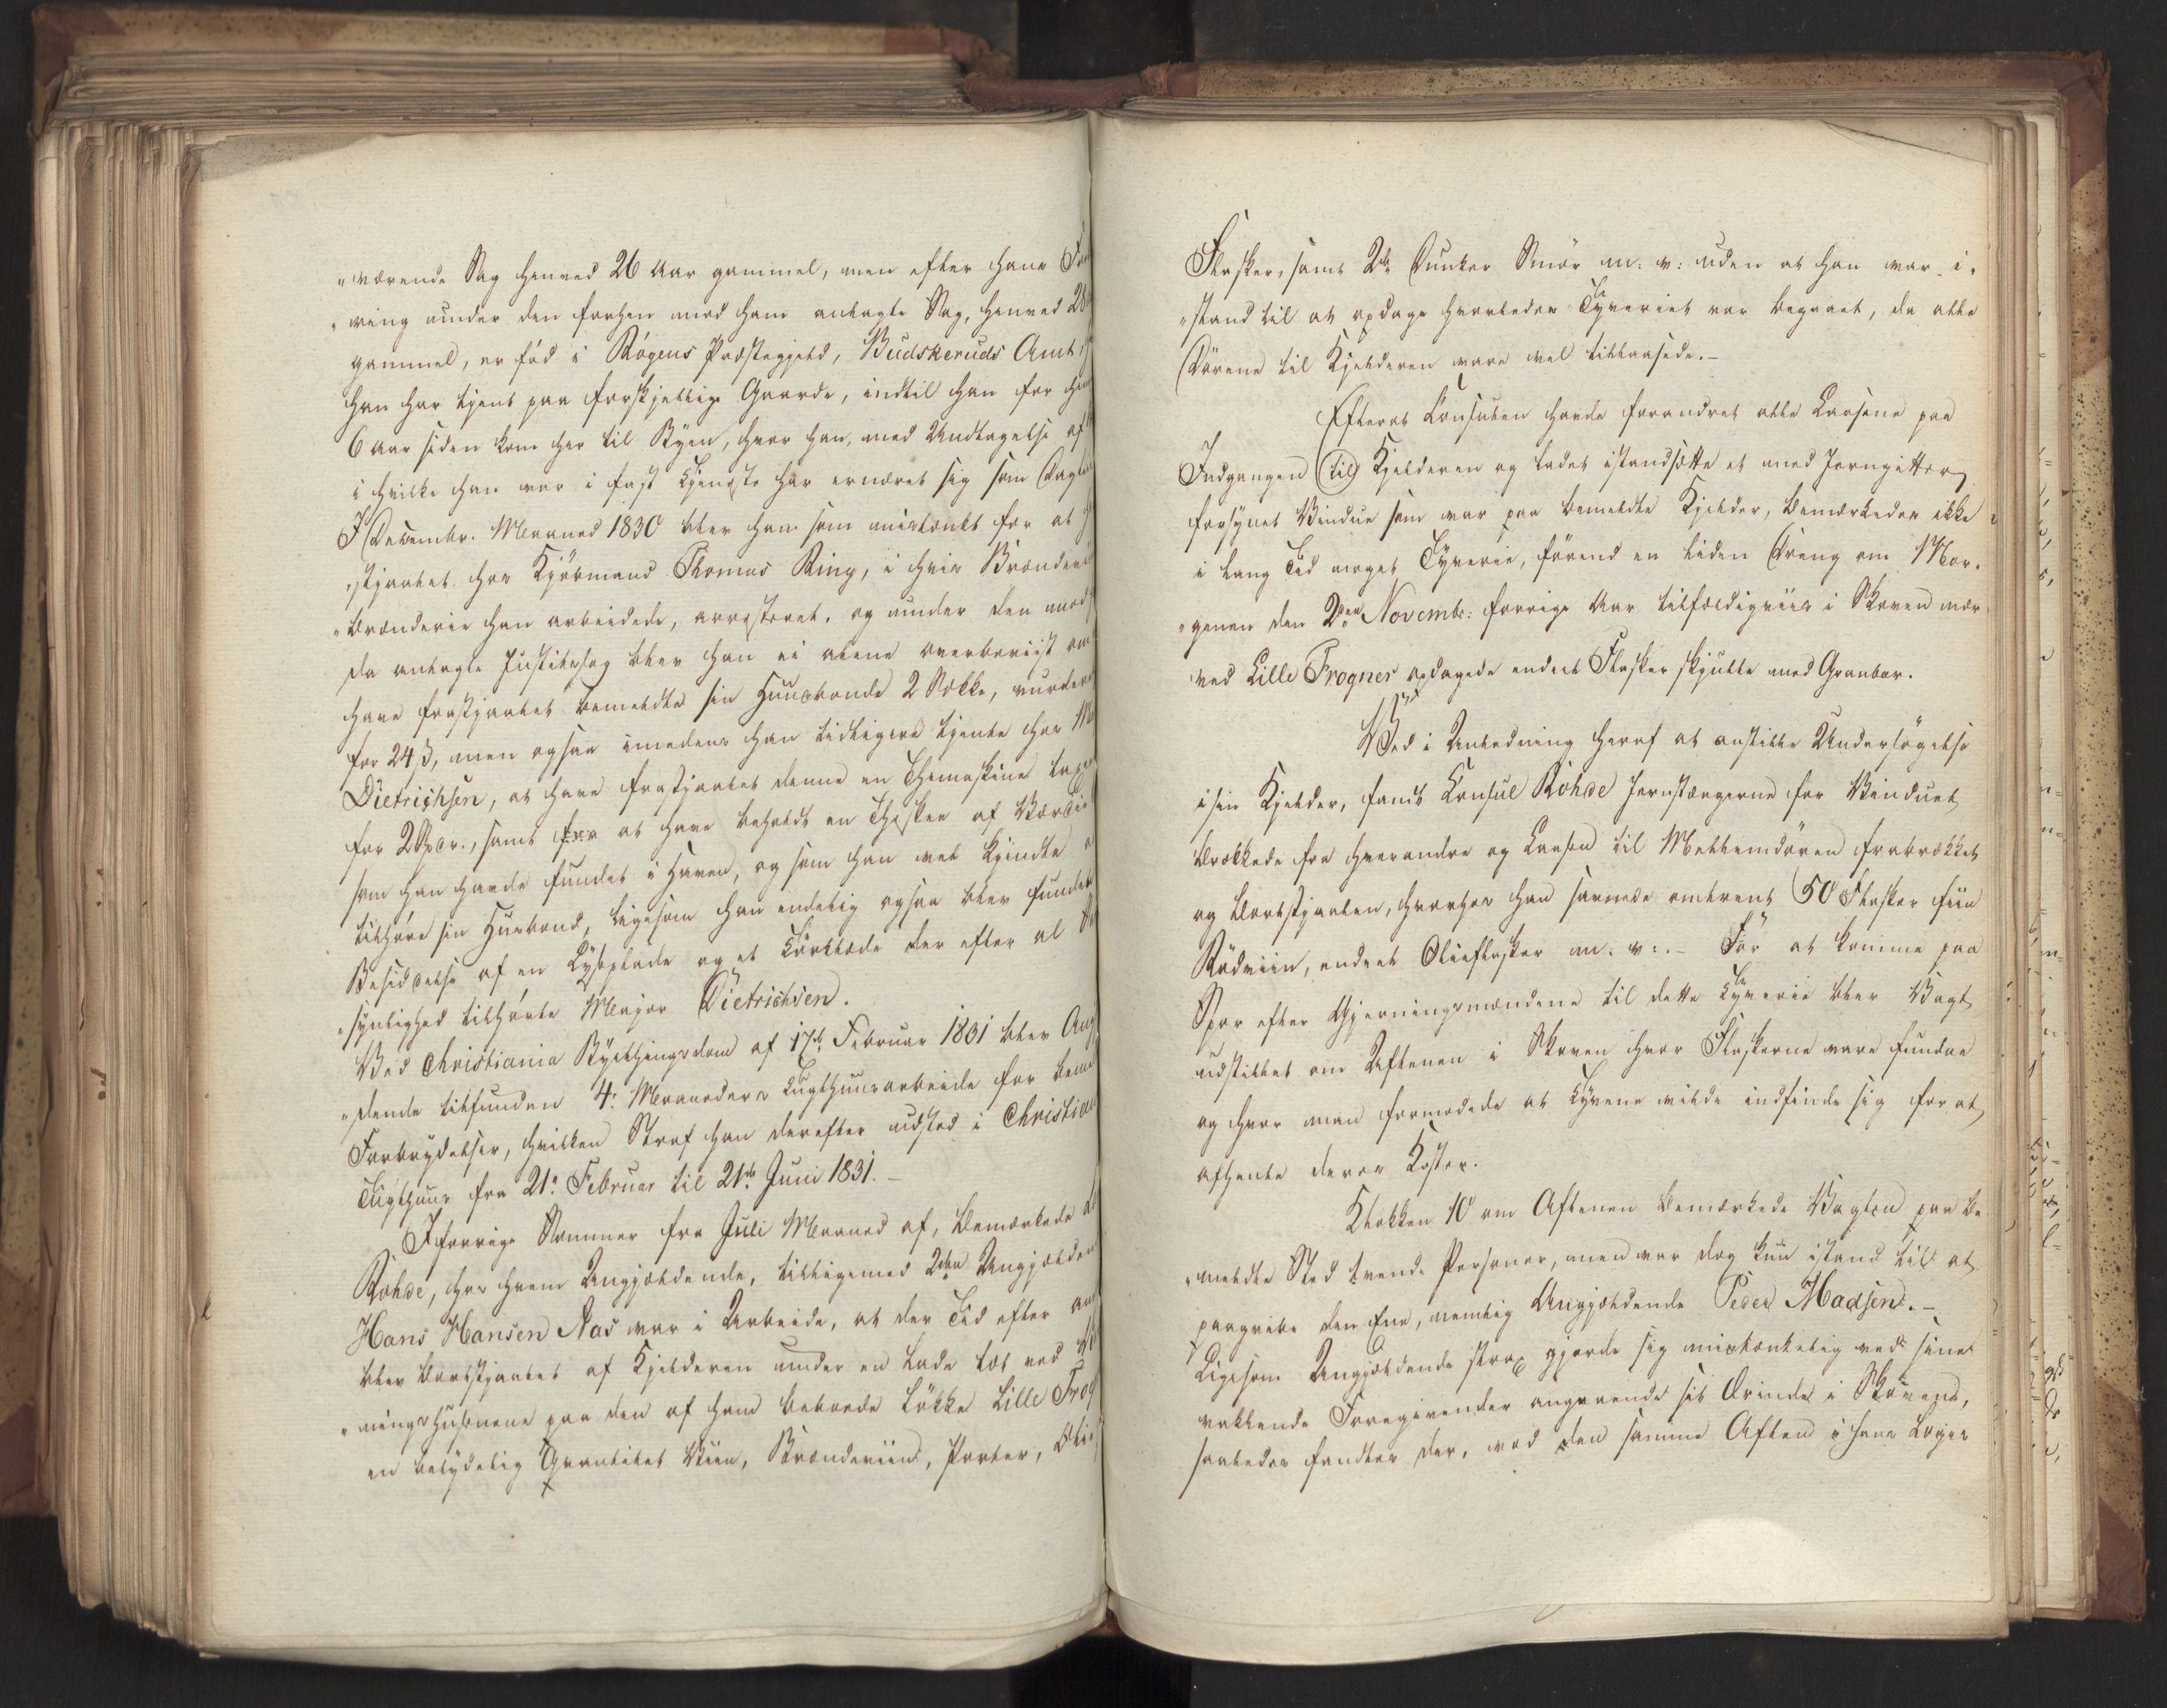 "værende Sag henved 26 Aar gammel, men efter hans
"ring under den forhen mod ham anlagte Sag, henved 28
gammel, er fød i Røgens Præstegjeld, Budskeruds Amt,
han har tjent paa forskjellige Gaarde, indtil han for
6 Aar siden kom her til Byen, hvor han, med Undtagelse af
i hvilke han var i fast Tjeneste har ernæret sig som
I Decembr. Maaned 1830 blev han som mistænkt for at
"stjaalet hos Kjøbmand Thomas Ring, i hvis
"brænderie han arbeidede, arresteret, og under den mod
da anlagte Justitssag blev han ei alene overbeviist om
have frastjaalet bemeldte sin Huusbonde 2 Sække, vurderet
for 24 ß, men ogsaa imedens han tidligere tjente hos
Dietrichsen, at have frastjaalet denne en Themaskine
for 2 Spdr., samt for at have beholdt en Theskee af Værdie
som han havde fundet i Haven, og som han vel kjendte
tilhøre sin Husbond, ligesom han endelig ogsaa blev fundet
Besiddelse af en Lyseplade og et Tørklæde der efter al
"synlighed tilhørte Major Dietrichsen.
Ved Christiania Byethingsdom af 17de Februar 1831 blev
"dende tilfunden 4: Maaneders Tugthuusarbeide for
Forbrydelser, hvilken Straf han derefter udstod i
Tugthuus fra 21: Februar til 21de Juni 1831.-
I forrige Sommer fra Juli Maaned af, bemærkede
Rohde, hos hvem Angjældende, tilligemed 2den
Hans Hansen Næs var i Arbeide, at der Tid efter
blev bortstjaalet af Kjelderen under en Lade tæt ved
"ningshusene paa den af ham beboede Løkke Lille
en betydelig Qvantitet Viin, Brændeviin, Porter,
Flasker, samt 2de Dunker Smør m: v: uden at han var i
"stand til at opdage hvorledes Tyveriet var begaaet, da alle
Dørene til Kjelderen vare vel tillaasede.-
Efterat Consulen havde forandret alle Laasene paa
Indgangen til Kjelderen og ladet istandsætte et med Jerngitter
forsynet Vindue som var paa bemeldte Kjelder, bemærkedes ikke
i lang Tid noget Tyverie, førend en liden Dreng om Mor-
"genen den 2den Novembr: forrige Aar tilfældigviis i Skoven nær
ved Lille Frogner opdagede endeel Flasker skjulte med Granbar.
Ved i Anledning heraf at anstille Undersøgelse
i sin Kjelder, fandt Consul Rohde Jernstængerne for Vinduet
brækkede fra hverandre og Laasen til Mellemdøren frabrækket
og bortstjaalen, hvorhos han savnede omtrent 50 Flasker fiin
Rødviin, endeel Olieflasker m: v:.- For at komme paa
Spor efter Gjerningsmændene til dette Tyverie blev Vagt
udstillet om Aftenen i Skoven hvor Flaskerne vare fundne
og hvor man formodede at Tyvene vilde indfinde sig for at
afhente deres Koster.
Klokken 10 om Aftenen bemærkede Vagten paa be
"meldte Sted tvende Personer, men var dog kun istand til at
paagribe den Ene, nemlig Angjældende Peder Madsen.-
Ligesom Angjældende strax gjorde sig mistænkelig ved sine
vaklende Foregivender angaaende sit Ærinde i Skoven,
saaledes fandtes der, ved den samme Aften i hans Logis